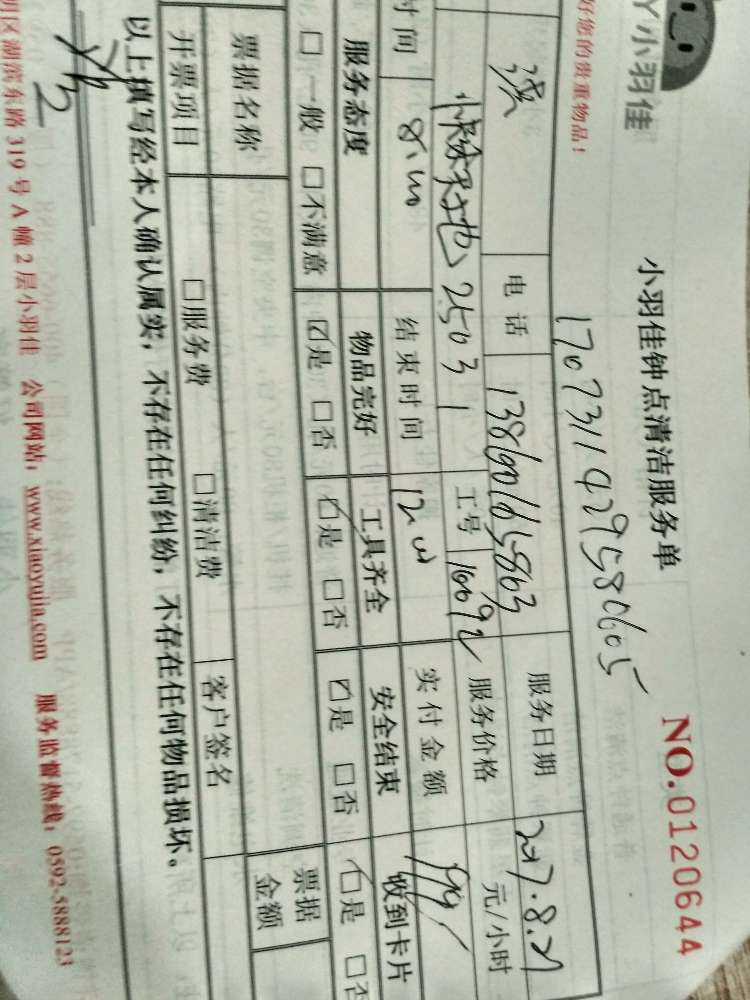 丫小羽佳
小羽佳钟点清洁服务单
NO.0120644
好您的贵重物品!
1707311429580605
电话 13860165863 服务日期 2017.8.21
2503 工号 10092 服务价格 元/小时
时间 8:00 结束时间 12:00 实付金额 199
服务态度 物品完好 工具齐全 安全结束 收到卡片
□一般 □不满意 ☑是 □否 ☑是 □否 ☑是 □否 ☑是 □否
票据名称 票据金额
开票项目 □服务费 □清洁费 客户签名
以上填写经本人确认属实,不存在任何纠纷,不存在任何物品损坏。
明区湖滨东路 319 号 A 幢 2 层小羽佳 公司网站:www.xiaoyujia.com 服务监督热线:0592-5888123